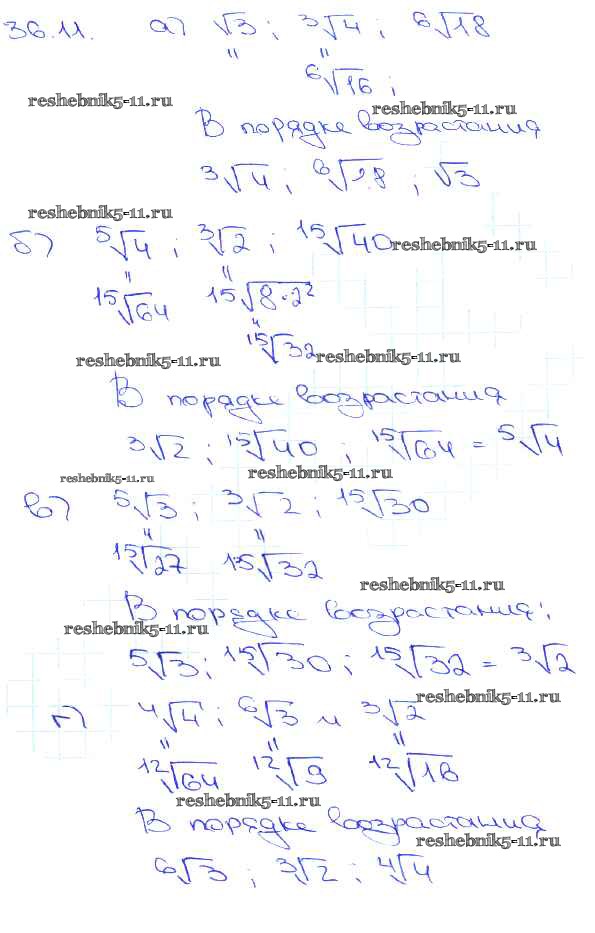 36.11. а) √3 ; ³√4 ; ⁶√18
" "
⁶√16 ;
reshebnik5-11.ru reshebnik5-11.ru
В порядке возрастания
³√4 ; ⁶√18 ; √3
reshebnik5-11.ru
б) ⁵√4 ; ³√2 ; ¹⁵√40 reshebnik5-11.ru
" "
¹⁵√64 ¹⁵√8·2²
"
¹⁵√32
reshebnik5-11.ru reshebnik5-11.ru
В порядке возрастания
³√2 ; ¹⁵√40 ; ¹⁵√64 = ⁵√4
reshebnik5-11.ru reshebnik5-11.ru
в) ⁵√3 ; ³√2 ; ¹⁵√30
" "
¹⁵√27 ¹⁵√32
reshebnik5-11.ru
В порядке возрастания:
reshebnik5-11.ru
⁵√3 ; ¹⁵√30 ; ¹⁵√32 = ³√2
reshebnik5-11.ru
г) ⁴√4 ; ⁶√3 и ³√2
" " "
¹²√64 ¹²√9 ¹²√18
reshebnik5-11.ru
В порядке возрастания
reshebnik5-11.ru
⁶√3 ; ³√2 ; ⁴√4